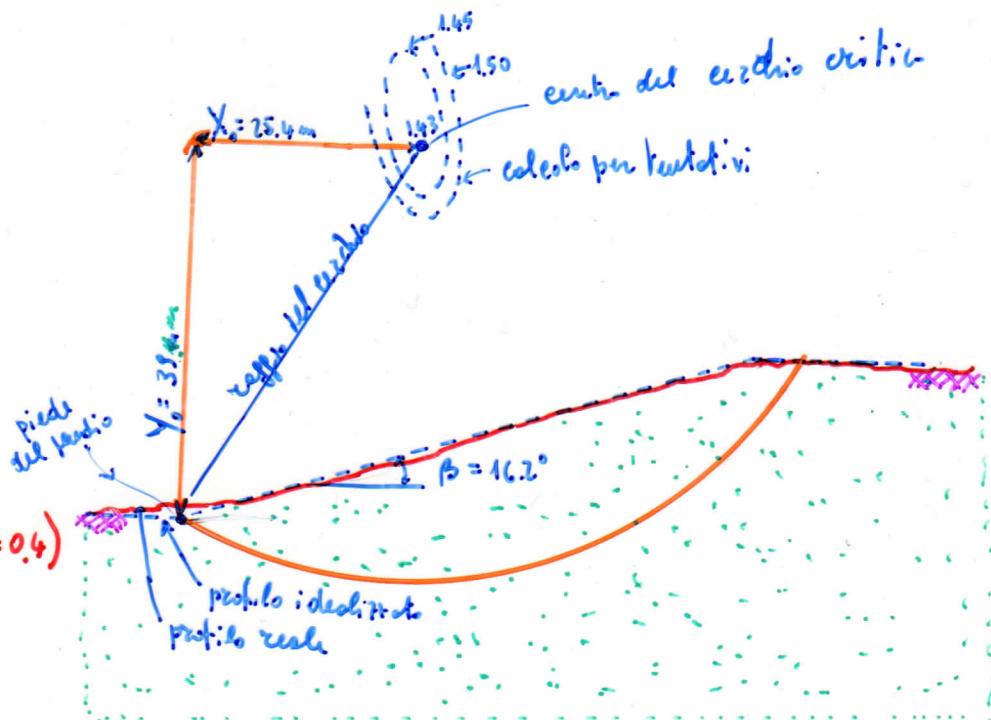 1.45
1.50
centro del cerchio critico
X₀ = 25.4 m
1.43
calcolo per tentativi
raggio del cerchio
Y₀ = 39 m
piede
del pendio
β = 16.2°
= 0.4)
profilo idealizzato
profilo reale